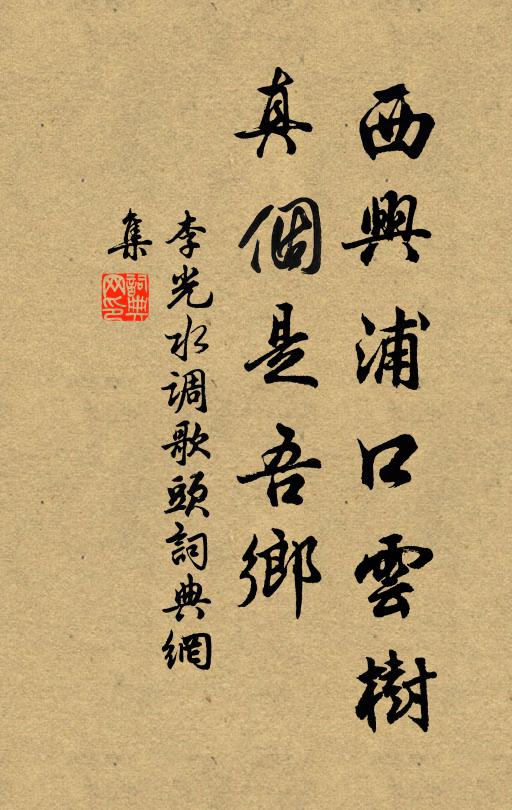 西興浦口雲樹
真個是吾鄉
李光水调歌頭詞典網
集
詞典网印